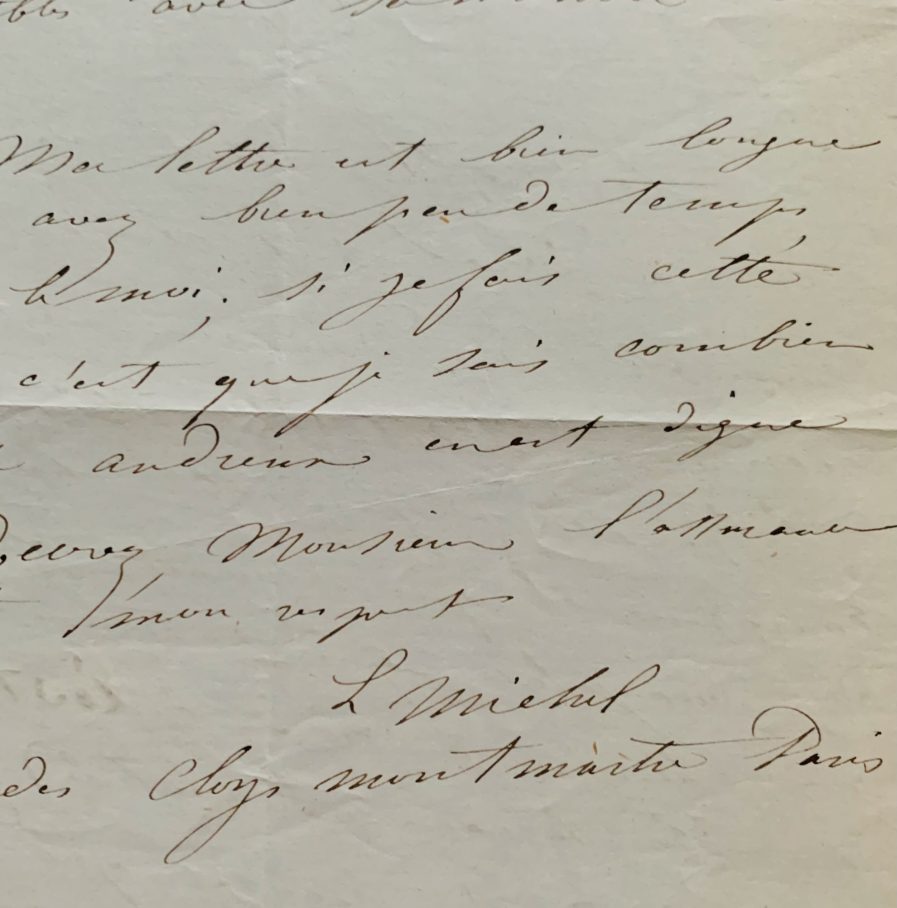 avec
Ma lettre est bien longue
avez bien peu de temps
moi; si je fais cette
c'est que je sais combien
andrieux en est digne
Recevez Monsieur l'assurance
mon respect
L Michel
des Cloys montmartre Paris